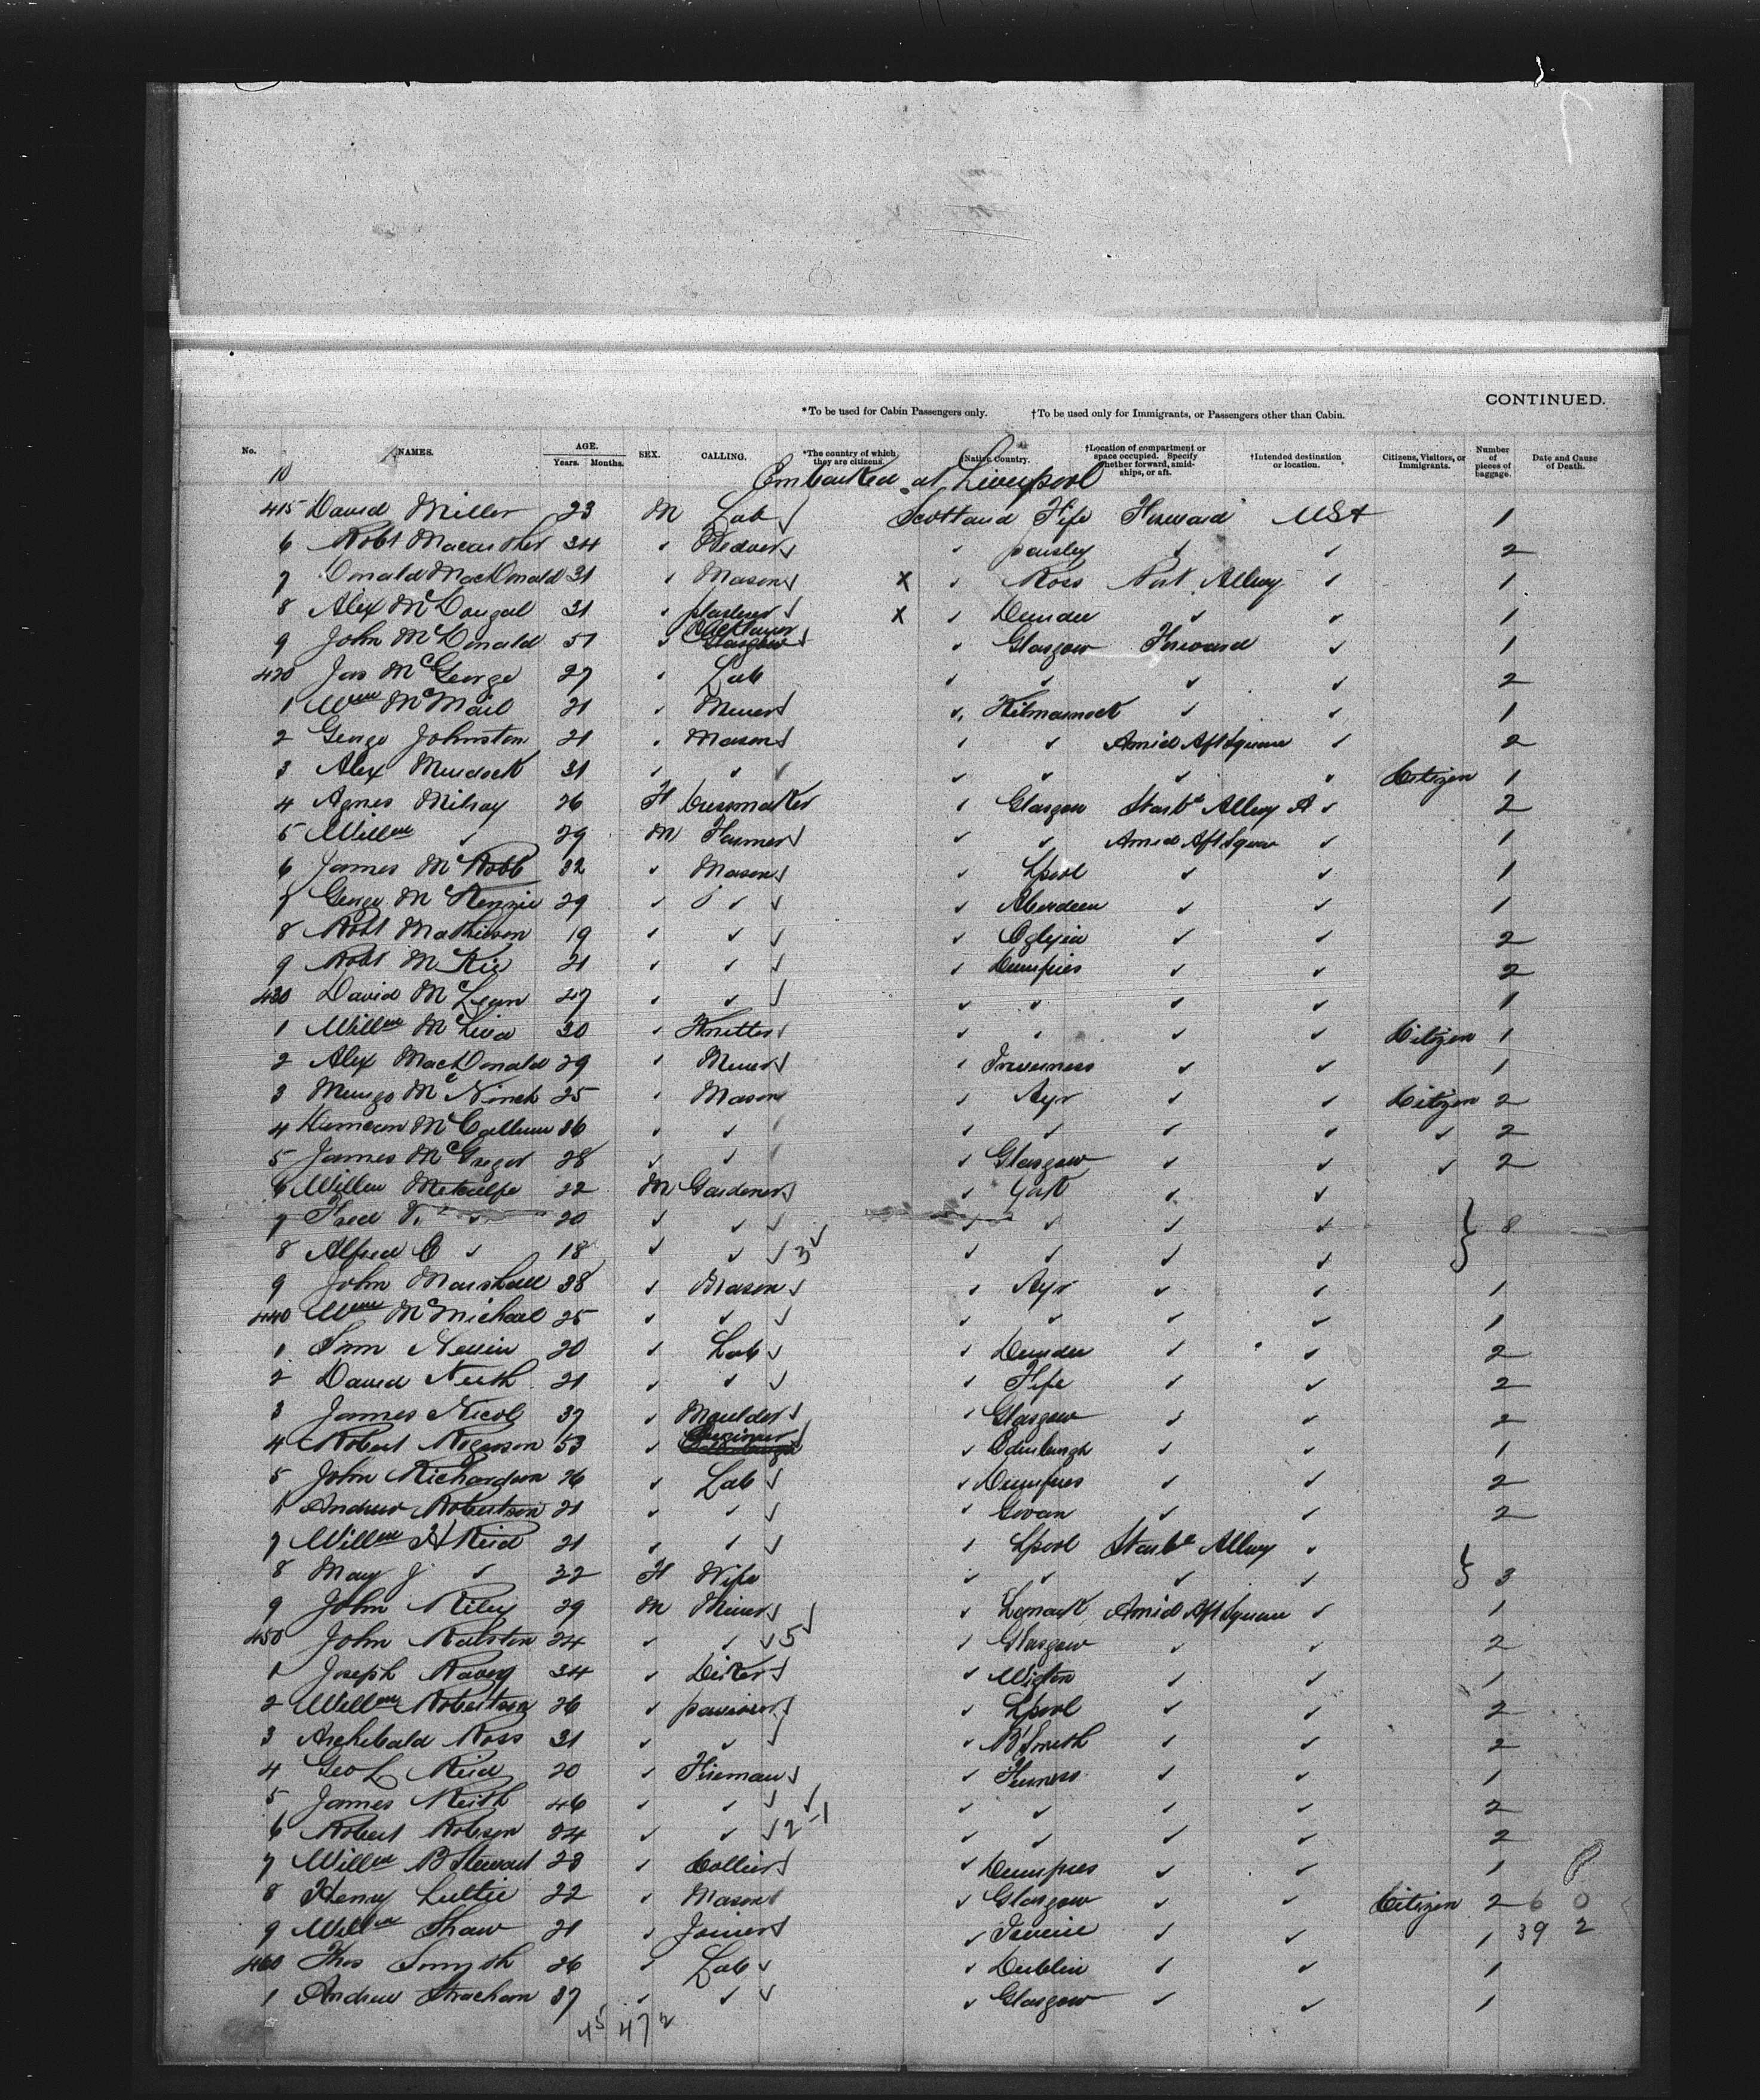 CONTINUED.
*To be used for Cabin Passengers only. †To be used only for Immigrants, or Passengers other than Cabin.
No. NAMES. AGE. Years. Months. SEX. CALLING. *The country of which they are citizens. Native Country. †Location of compartment or space occupied. Specify whether forward, amidships, or aft. †Intended destination or location. Citizens, Visitors, or Immigrants. Number of pieces of baggage. Date and Cause of Death.
10 Embarked at Liverpool
415 David Miller 23 M Lab Scotland Fife Forward USA 1
6 Robt 34 ✓ Weaver ✓ paisley ✓ ✓ 2
7 Donald MacDonald 31 ✓ Mason X ✓ Ross Port Allwy ✓ 1
8 Alex McDougal 31 ✓ plasterer X ✓ Dundee ✓ ✓ 1
9 John McDonald 51 ✓ Glasgow ✓ Glasgow Forward ✓ 1
420 Jas McGeorge 27 ✓ Lab ✓ ✓ ✓ ✓ 2
1 Wm McMail 21 ✓ Miner ✓ Kilmarnock ✓ ✓ 1
2 George Johnston 21 ✓ Mason ✓ ✓ Amid Aft Square ✓ 2
3 Alex Murdock 31 ✓ ✓ ✓ ✓ ✓ ✓ Citizen 1
4 Agnes Milroy 26 F Dressmaker ✓ Glasgow Starbd Allwy A ✓ 2
5 Willm ✓ 29 M Farmer ✓ ✓ Amid Aft Square ✓ 1
6 James McRobb 32 ✓ Mason ✓ Lpool ✓ ✓ 1
7 George McKenzie 29 ✓ ✓ ✓ Aberdeen ✓ ✓ 1
8 Robt Mathieson 19 ✓ ✓ ✓ ✓ ✓ 2
9 Robt McKie 21 ✓ ✓ ✓ Dumfries ✓ ✓ 2
430 David McLean 27 ✓ ✓ ✓ ✓ ✓ ✓ 1
1 Willm 30 ✓ Knitter ✓ ✓ ✓ ✓ Citizen 1
2 Alex MacDonald 29 ✓ Miner ✓ Inverness ✓ ✓ 1
3 Mungo McNinch 25 ✓ Mason ✓ Ayr ✓ ✓ Citizen 2
4 Duncan McCallum 36 ✓ ✓ ✓ ✓ ✓ ✓ ✓ 2
5 James McGregor 28 ✓ ✓ ✓ Glasgow ✓ ✓ ✓ 2
6 Willm Metcalfe 22 M Gardener ✓ York ✓ ✓
7 Fred ✓ 20 ✓ ✓ ✓ ✓ ✓ ✓ } 8
8 Alfred C ✓ 18 ✓ ✓ ✓ 3 ✓ ✓ ✓ ✓
9 John Marshall 38 ✓ Mason ✓ Ayr ✓ ✓ 1
440 Wm McMichael 25 ✓ ✓ ✓ ✓ ✓ ✓ 1
1 20 ✓ Lab ✓ Dundee ✓ ✓ 2
2 David 21 ✓ ✓ ✓ Fife ✓ ✓ 2
3 James Nicol 37 ✓ Moulder ✓ Glasgow ✓ ✓ 2
4 Robert Rogerson 53 ✓ ✓ Edinburgh ✓ ✓ 1
5 John Richardson 26 ✓ Lab ✓ Dumfries ✓ ✓ 2
6 Andrew Robertson 21 ✓ ✓ ✓ Govan ✓ ✓ 2
7 Willm H Reid 21 ✓ ✓ ✓ Lpool Starbd Allwy ✓
8 May J ✓ 22 F Wife ✓ ✓ ✓ ✓ } 3
9 John Riley 29 M Miner ✓ Lanark Amid Aft Square ✓ 1
450 John Ralston 24 ✓ ✓ 5 ✓ Glasgow ✓ ✓ 2
1 Joseph 34 ✓ ✓ Wigton ✓ ✓ 1
2 Willm Robertson 26 ✓ paviour ✓ Lpool ✓ ✓ 2
3 Archibald Ross 31 ✓ ✓ ✓ ✓ ✓ 2
4 Geo L Reid 20 ✓ Fireman ✓ ✓ ✓ 1
5 James Keith 46 ✓ ✓ ✓ ✓ ✓ ✓ 2
6 Robert Robson 24 ✓ ✓ 2-1 ✓ ✓ ✓ ✓ 2
7 Willm B Stewart 23 ✓ Collier ✓ Dumfries ✓ ✓ 1
8 Henry 22 ✓ Mason ✓ Glasgow ✓ ✓ Citizen 2 6 0
9 Willm Shaw 21 ✓ Joiner ✓ Irvine ✓ ✓ 1 39 2
460 Thos Smyth 26 ✓ Lab ✓ Dublin ✓ ✓ 1
1 Andrew Strachan 37 ✓ ✓ ✓ Glasgow ✓ ✓ 1
45 47 2